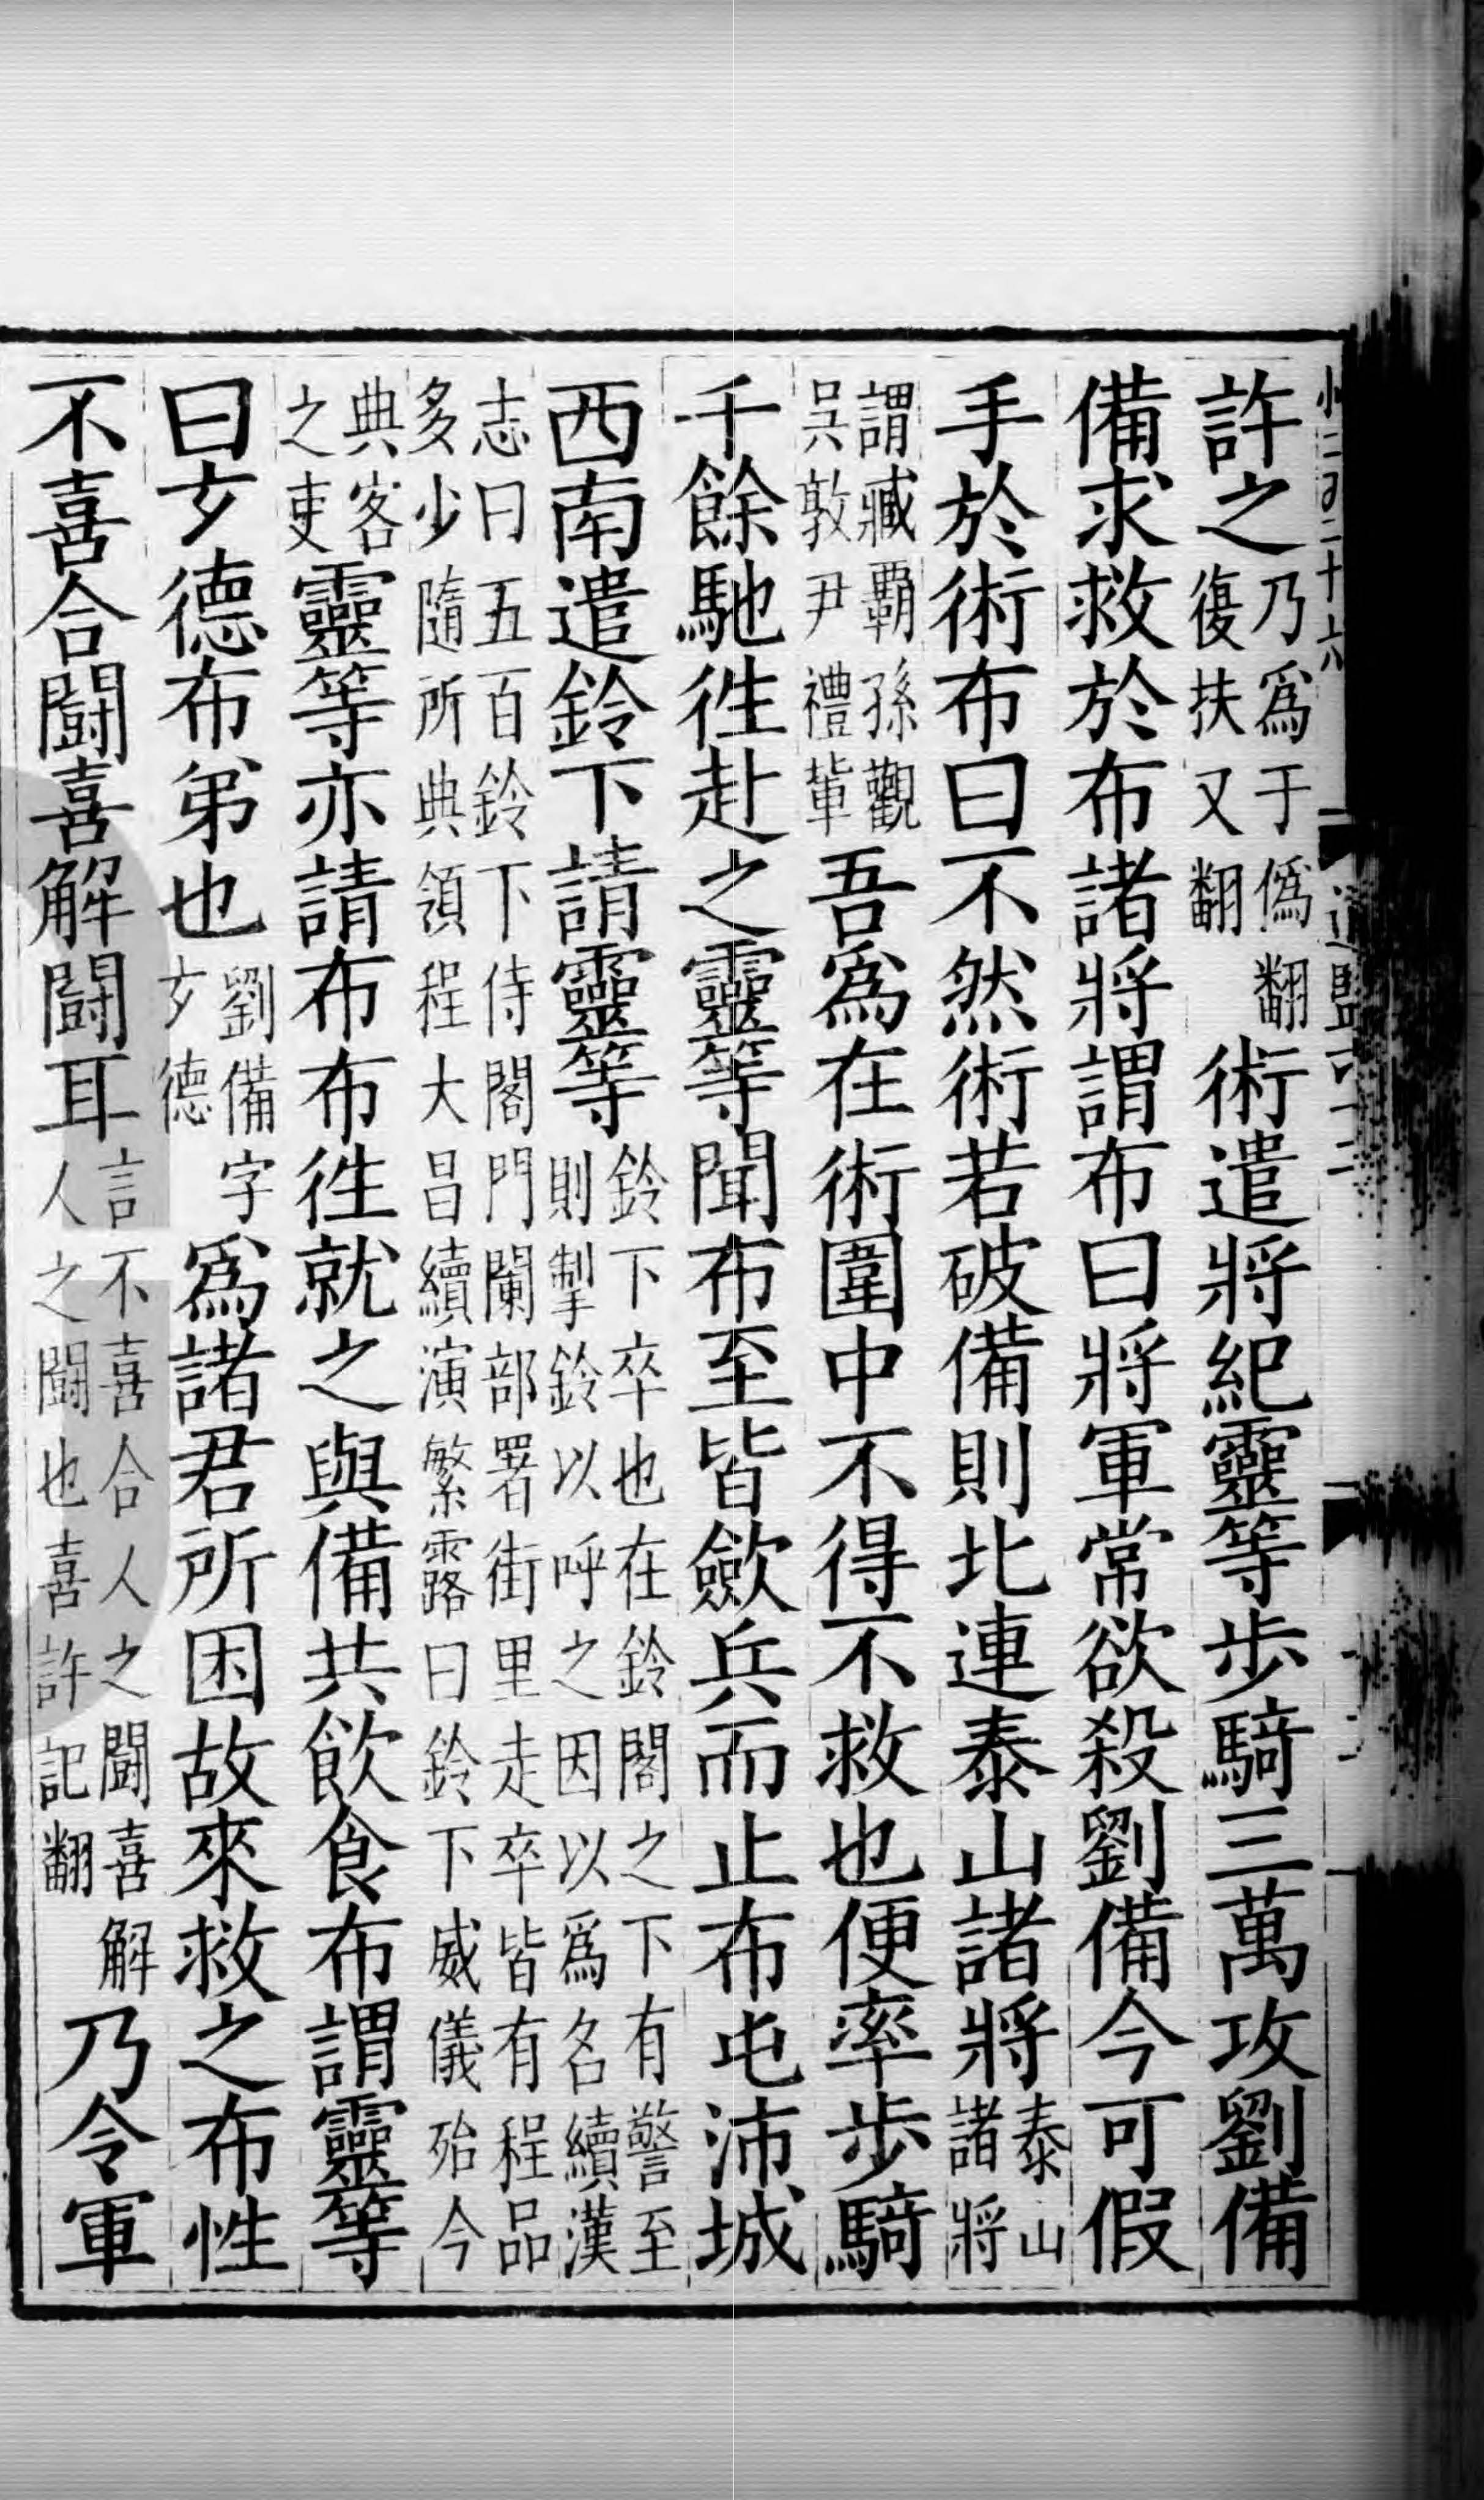 許之乃爲于僞翻復扶又翻術遣將紀靈等步騎三萬攻劉備
備求救於布諸將謂布曰將軍常欲殺劉備今可假
手於術布曰不然術若破備則北連泰山諸將泰山諸將
謂臧霸孫觀吳敦尹禮軰吾爲在術圍中不得不救也便率步騎
千餘馳徃赴之靈等聞布至皆歛兵而止布屯沛城
西南遣鈴下請靈等鈴下卒也在鈴閤之下有警至則掣鈴以呼之因以爲名續漢
志曰五百鈴下侍閤門闌部署街里走卒皆有程品多少隨所典領程大昌續演繁露曰鈴下威儀殆今
典客之吏靈等亦請布布徃就之與備共飲食布謂靈等
曰𤣥德布弟也劉備字𤣥德爲諸君所困故來救之布性
不喜合鬪喜解鬪耳言不喜合人之鬪喜解人之鬪也喜許記翻乃令軍